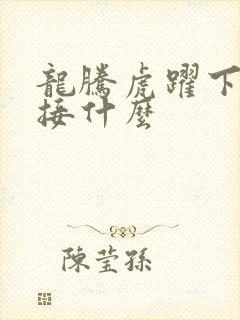 龍騰虎躍下
接什麼
陳瑩孫